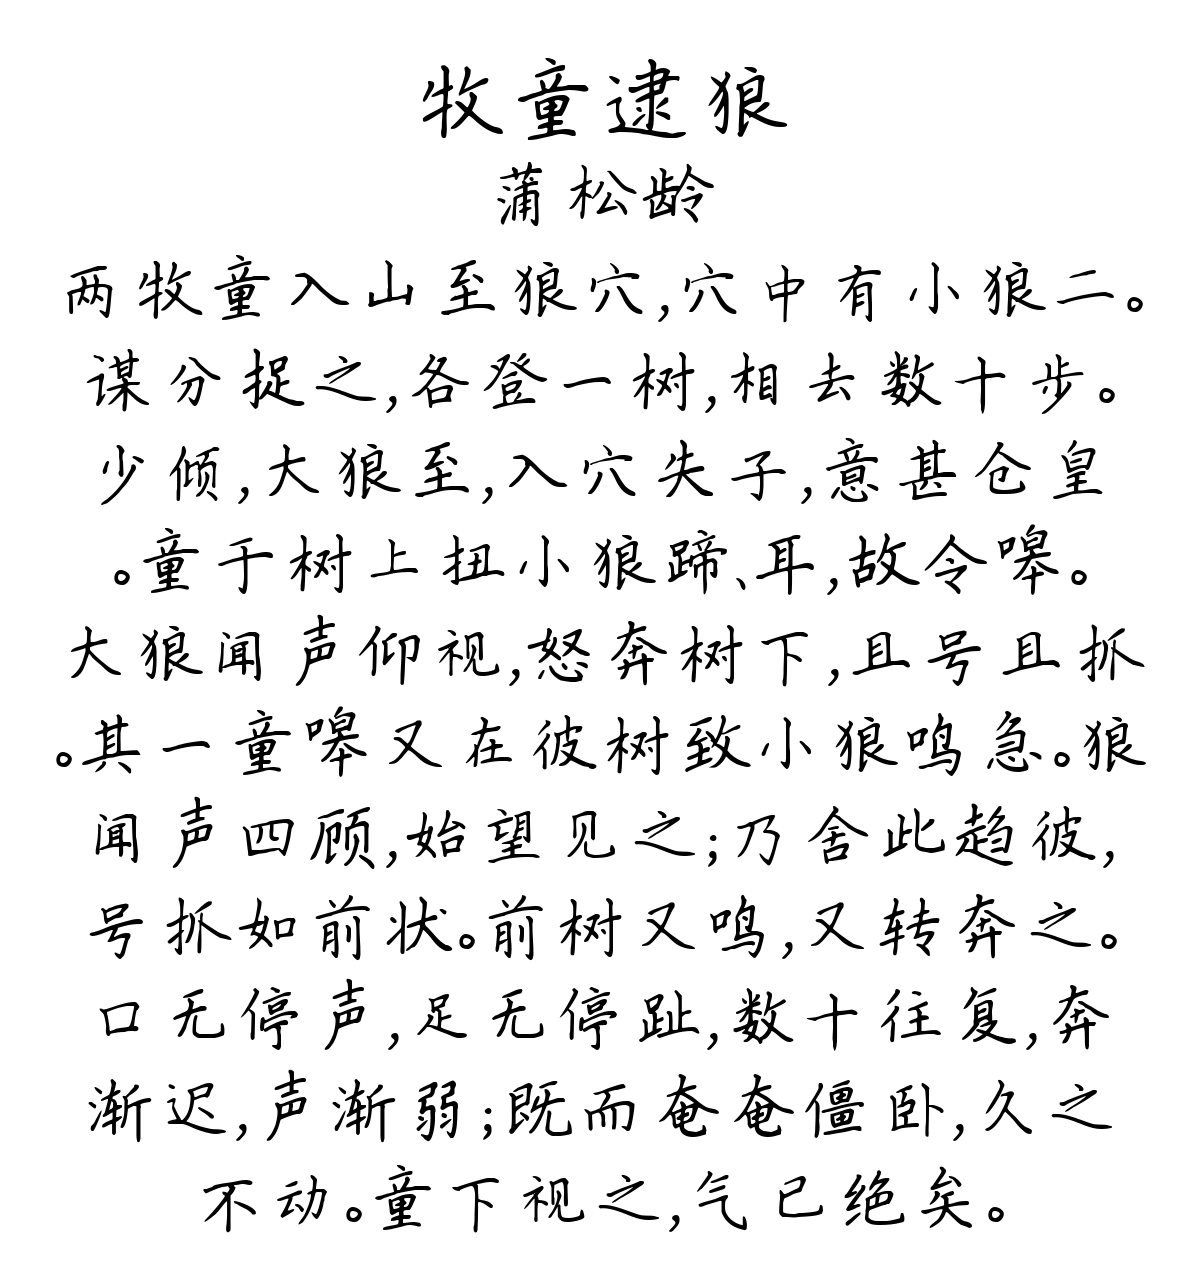 牧童逮狼
蒲松龄
两牧童入山至狼穴,穴中有小狼二。
谋分捉之,各登一树,相去数十步。
少倾,大狼至,入穴失子,意甚仓皇
。童于树上扭小狼蹄、耳,故令嗥。
大狼闻声仰视,怒奔树下,且号且抓
。其一童嗥又在彼树致小狼鸣急。狼
闻声四顾,始望见之;乃舍此趋彼,
号抓如前状。前树又鸣,又转奔之。
口无停声,足无停趾,数十往复,奔
渐迟,声渐弱;既而奄奄僵卧,久之
不动。童下视之,气已绝矣。